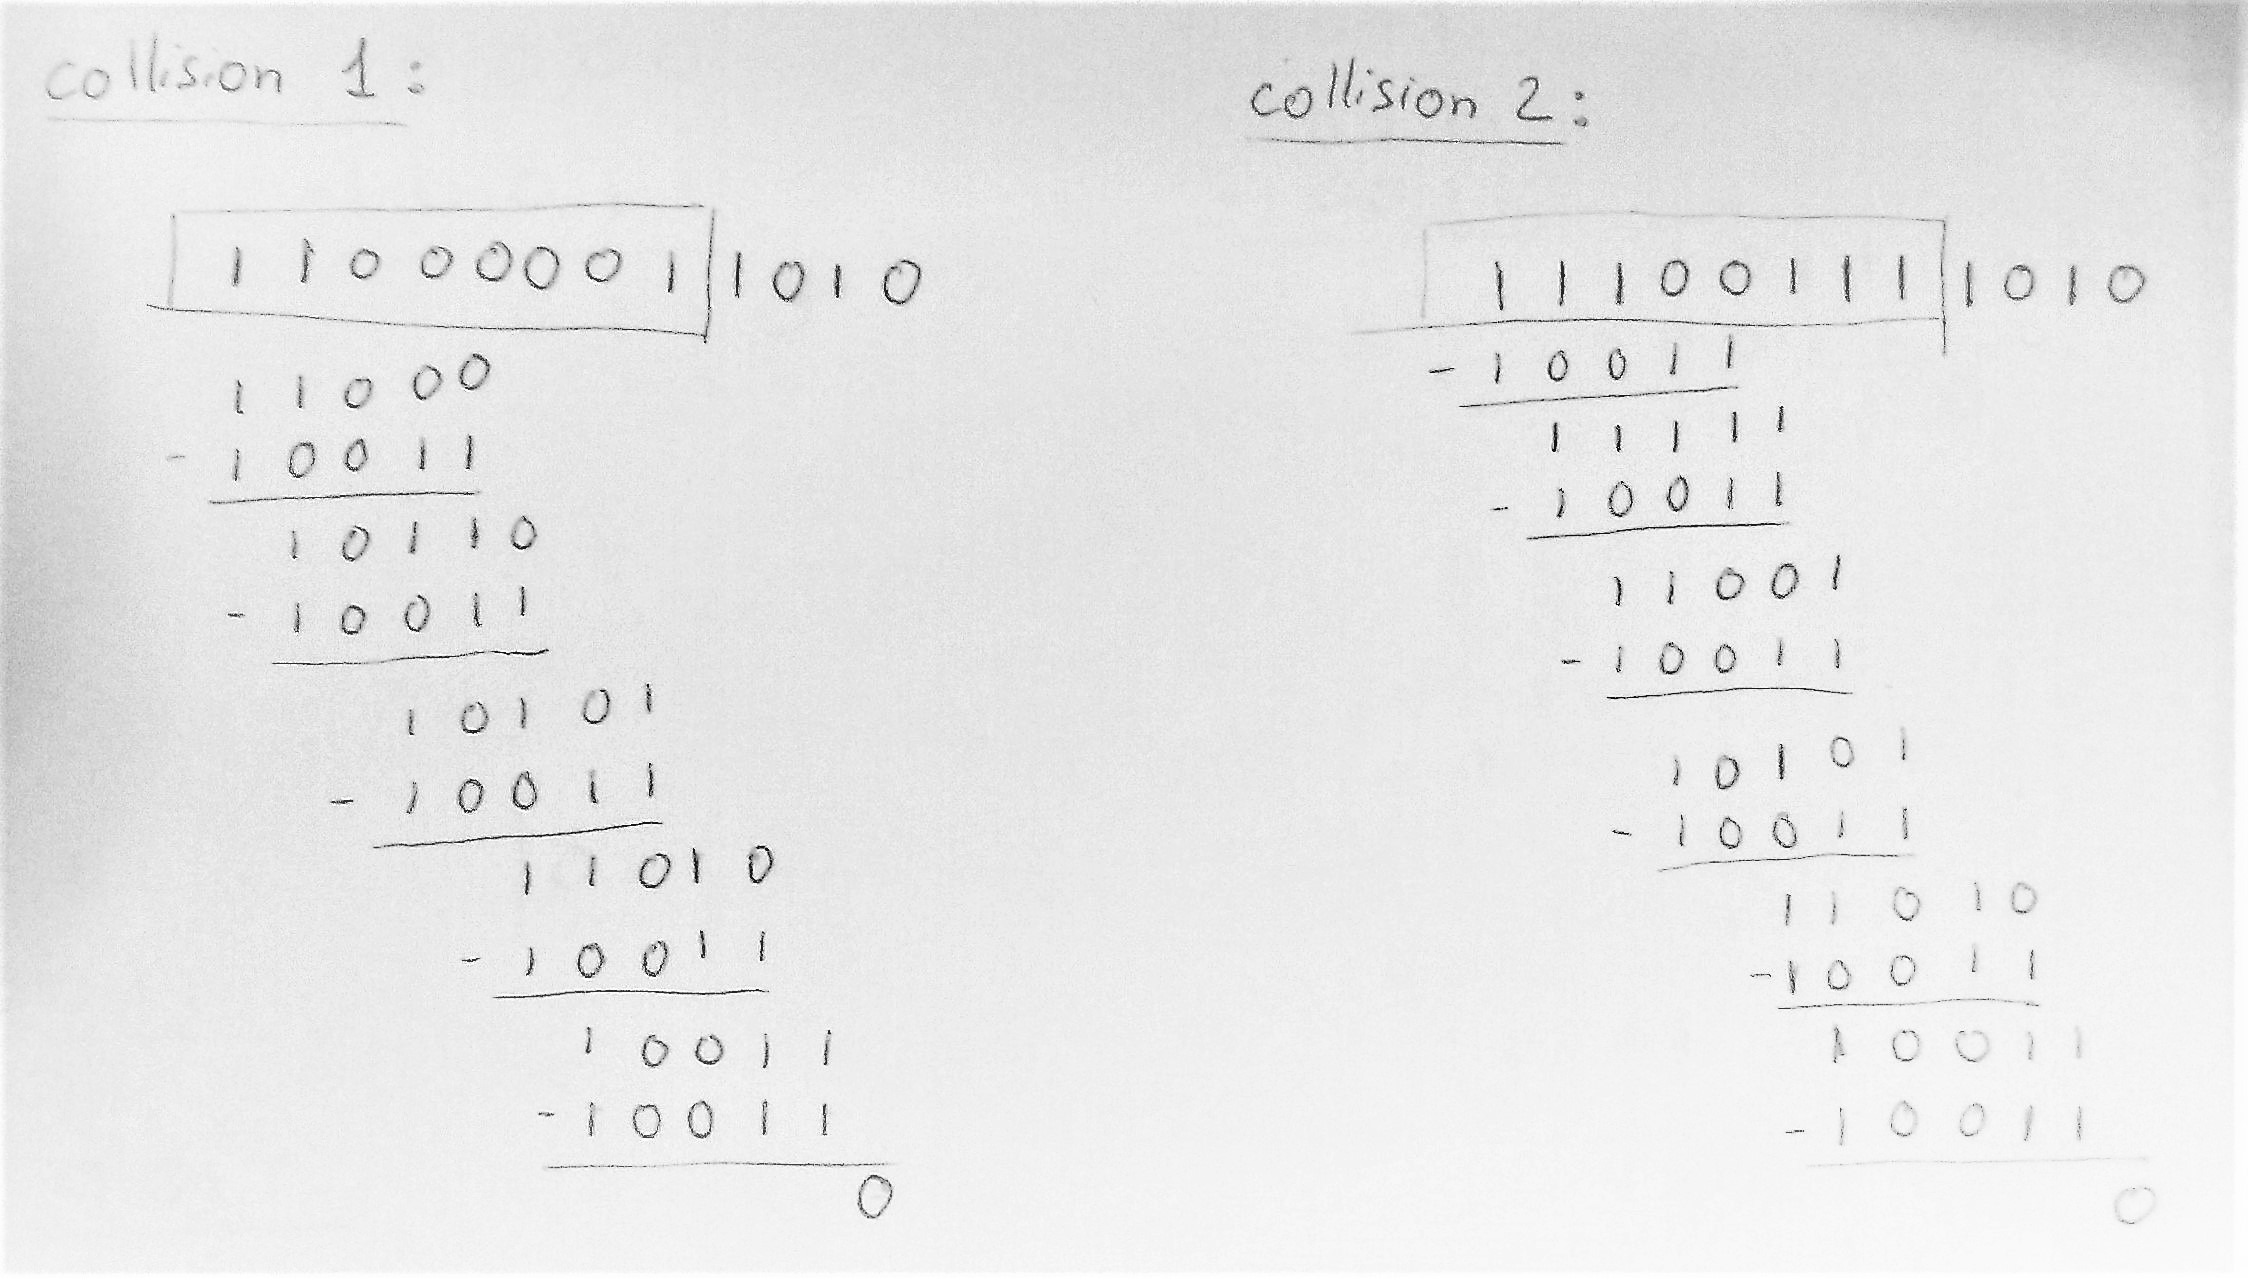 collision 1:
1 1 0 0 0 0 0 1 1 0 1 0
1 1 0 0 0
- 1 0 0 1 1
1 0 1 1 0
- 1 0 0 1 1
1 0 1 0 1
- 1 0 0 1 1
1 1 0 1 0
- 1 0 0 1 1
1 0 0 1 1
- 1 0 0 1 1
0
collision 2:
1 1 1 0 0 1 1 1 1 0 1 0
- 1 0 0 1 1
1 1 1 1 1
- 1 0 0 1 1
1 1 0 0 1
- 1 0 0 1 1
1 0 1 0 1
- 1 0 0 1 1
1 1 0 1 0
- 1 0 0 1 1
1 0 0 1 1
- 1 0 0 1 1
0